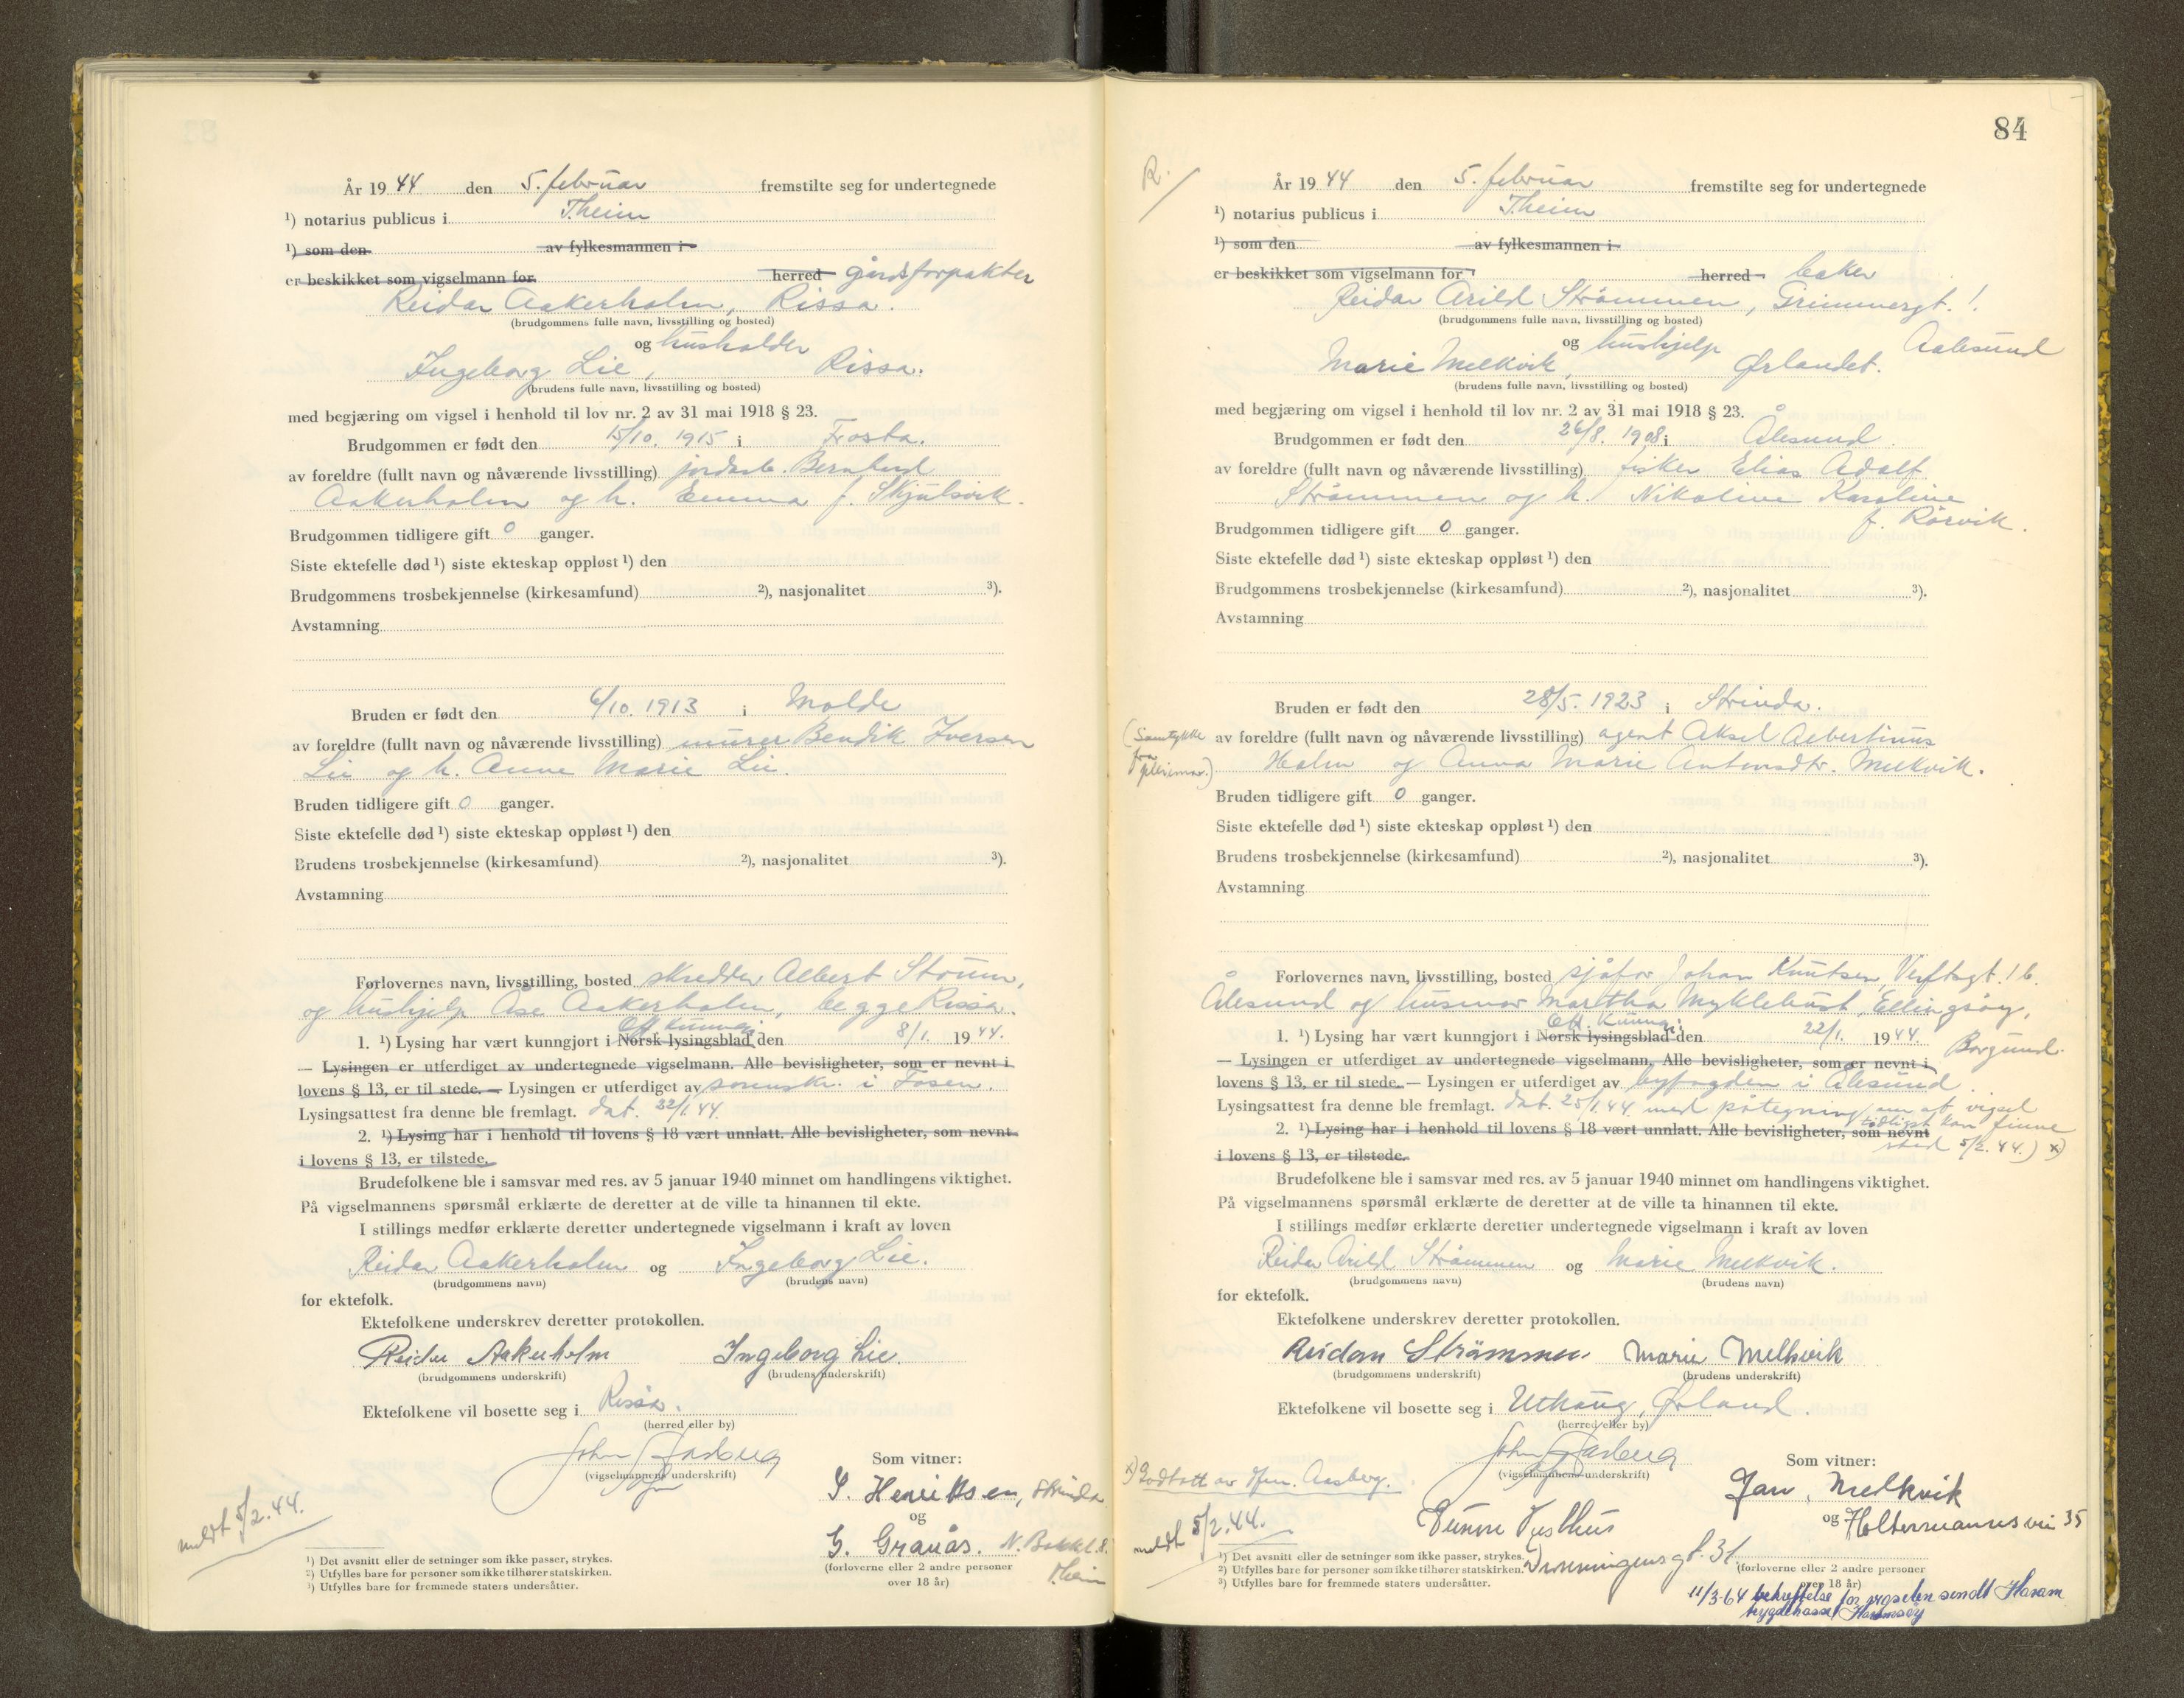 År 1944 den 5. februar fremstilte seg for undertegnede
¹) notarius publicus i Theim
¹) som den av fylkesmannen i
er beskikket som vigselmann for herred gårdsforpakter
Reidar Aakerholm, Rissa.
(brudgommens fulle navn, livsstilling og bosted)
og husholder
Ingeborg Lie, Rissa.
(brudens fulle navn, livsstilling og bosted)
med begjæring om vigsel i henhold til lov nr. 2 av 31 mai 1918 § 23.
Brudgommen er født den 15/10. 1915 i Frosta.
av foreldre (fullt navn og nåværende livsstilling) jordarb. Bernhard
Aakerholm og h. Emma f. Skjulsvik.
Brudgommen tidligere gift 0 ganger.
Siste ektefelle død ¹) siste ekteskap oppløst ¹) den
Brudgommens trosbekjennelse (kirkesamfund) ²), nasjonalitet ³).
Avstamning
Bruden er født den 6/10. 1913 i Molde
av foreldre (fullt navn og nåværende livsstilling) murer Bendik Iversen
Lie og h. Anne Marie Lie.
Bruden tidligere gift 0 ganger.
Siste ektefelle død ¹) siste ekteskap oppløst ¹) den
Brudens trosbekjennelse (kirkesamfund) ²), nasjonalitet ³).
Avstamning
Forlovernes navn, livsstilling, bosted skredder Albert Strøm,
og hushjelp Åse Aakerholm, begge Rissa.
Off. kunngj.
1. ¹) Lysing har vært kunngjort i Norsk lysingsblad den 8/1. 1944.
— Lysingen er utferdiget av undertegnede vigselmann. Alle bevisligheter, som er nevnt i
lovens § 13, er til stede. — Lysingen er utferdiget av sorenskr. i Fosen.
Lysingsattest fra denne ble fremlagt. dat. 22/1.44.
2. ¹) Lysing har i henhold til lovens § 18 vært unnlatt. Alle bevisligheter, som nevnt
i lovens § 13, er tilstede.
Brudefolkene ble i samsvar med res. av 5 januar 1940 minnet om handlingens viktighet.
På vigselmannens spørsmål erklærte de deretter at de ville ta hinannen til ekte.
I stillings medfør erklærte deretter undertegnede vigselmann i kraft av loven
Reidar Aakerholm og Ingeborg Lie.
(brudgommens navn) (brudens navn)
for ektefolk.
Ektefolkene underskrev deretter protokollen.
Reidar Aakerholm Ingeborg Lie.
(brudgommens underskrift) (brudens underskrift)
Ektefolkene vil bosette seg i Rissa.
(herred eller by)
John Aasberg
(vigselmannens underskrift)
Som vitner:
S. Henriksen, Strinda
og
G. Granås. N. Bakkl. 8.
Theim
(forloverne eller 2 andre personer
over 18 år)
meldt 5/2.44.
¹) Det avsnitt eller de setninger som ikke passer, strykes.
²) Utfylles bare for personer som ikke tilhører statskirken.
³) Utfylles bare for fremmede staters undersåtter.
84
R.
År 1944 den 5. februar fremstilte seg for undertegnede
¹) notarius publicus i Theim
¹) som den av fylkesmannen i
er beskikket som vigselmann for herred baker
Reidar Arild Strømmen, Grimmergt. 1.
(brudgommens fulle navn, livsstilling og bosted) Aalesund
og hushjelp
Marie Melkvik, Ørlandet.
(brudens fulle navn, livsstilling og bosted)
med begjæring om vigsel i henhold til lov nr. 2 av 31 mai 1918 § 23.
Brudgommen er født den 26/8. 1908 i Ålesund.
av foreldre (fullt navn og nåværende livsstilling) fisker Elias Adolf
Strømmen og h. Nikoline Karoline
f. Rørvik.
Brudgommen tidligere gift 0 ganger.
Siste ektefelle død ¹) siste ekteskap oppløst ¹) den
Brudgommens trosbekjennelse (kirkesamfund) ²), nasjonalitet ³).
Avstamning
Bruden er født den 28/5. 1923 i Strinda.
(Samtykke fra
av foreldre (fullt navn og nåværende livsstilling) agent Aksel Albertinus
Holm og Anna Marie Antonsdtr. Melkvik.
Bruden tidligere gift 0 ganger.
Siste ektefelle død ¹) siste ekteskap oppløst ¹) den
Brudens trosbekjennelse (kirkesamfund) ²), nasjonalitet ³).
Avstamning
Forlovernes navn, livsstilling, bosted sjåfør Johan Knutsen, Verftsgt. 16.
Ålesund og husmor Martha Myklebust, Ellingsøy,
Off. kunngj. Borgund.
1. ¹) Lysing har vært kunngjort i Norsk lysingsblad den 22/1. 1944.
— Lysingen er utferdiget av undertegnede vigselmann. Alle bevisligheter, som er nevnt i
lovens § 13, er til stede. — Lysingen er utferdiget av byfogden i Ålesund.
Lysingsattest fra denne ble fremlagt. dat. 25/1.44 med påtegning om at vigsel
tidligst kan finne
2. ¹) Lysing har i henhold til lovens § 18 vært unnlatt. Alle bevisligheter, som nevnt
sted 5/2.44.) x)
i lovens § 13, er tilstede.
Brudefolkene ble i samsvar med res. av 5 januar 1940 minnet om handlingens viktighet.
På vigselmannens spørsmål erklærte de deretter at de ville ta hinannen til ekte.
I stillings medfør erklærte deretter undertegnede vigselmann i kraft av loven
Reidar Arild Strømmen og Marie Melkvik.
(brudgommens navn) (brudens navn)
for ektefolk.
Ektefolkene underskrev deretter protokollen.
Reidar Strømmen Marie Melkvik
(brudgommens underskrift) (brudens underskrift)
Ektefolkene vil bosette seg i Uthaug, Ørland.
(herred eller by)
John Aasberg
(vigselmannens underskrift)
Som vitner:
Jan Melkvik
og Holtermannsvei 35
x) Godtatt av dfm. Aasberg.
meldt 5/2.44.
Dronningensgt. 31.
¹) Det avsnitt eller de setninger som ikke passer, strykes.
²) Utfylles bare for personer som ikke tilhører statskirken.
³) Utfylles bare for fremmede staters undersåtter.
(forloverne eller 2 andre personer
over 18 år)
11/3-64 bekreftelse for vigselen sendt Haram
trygdekasse, Haramsøy